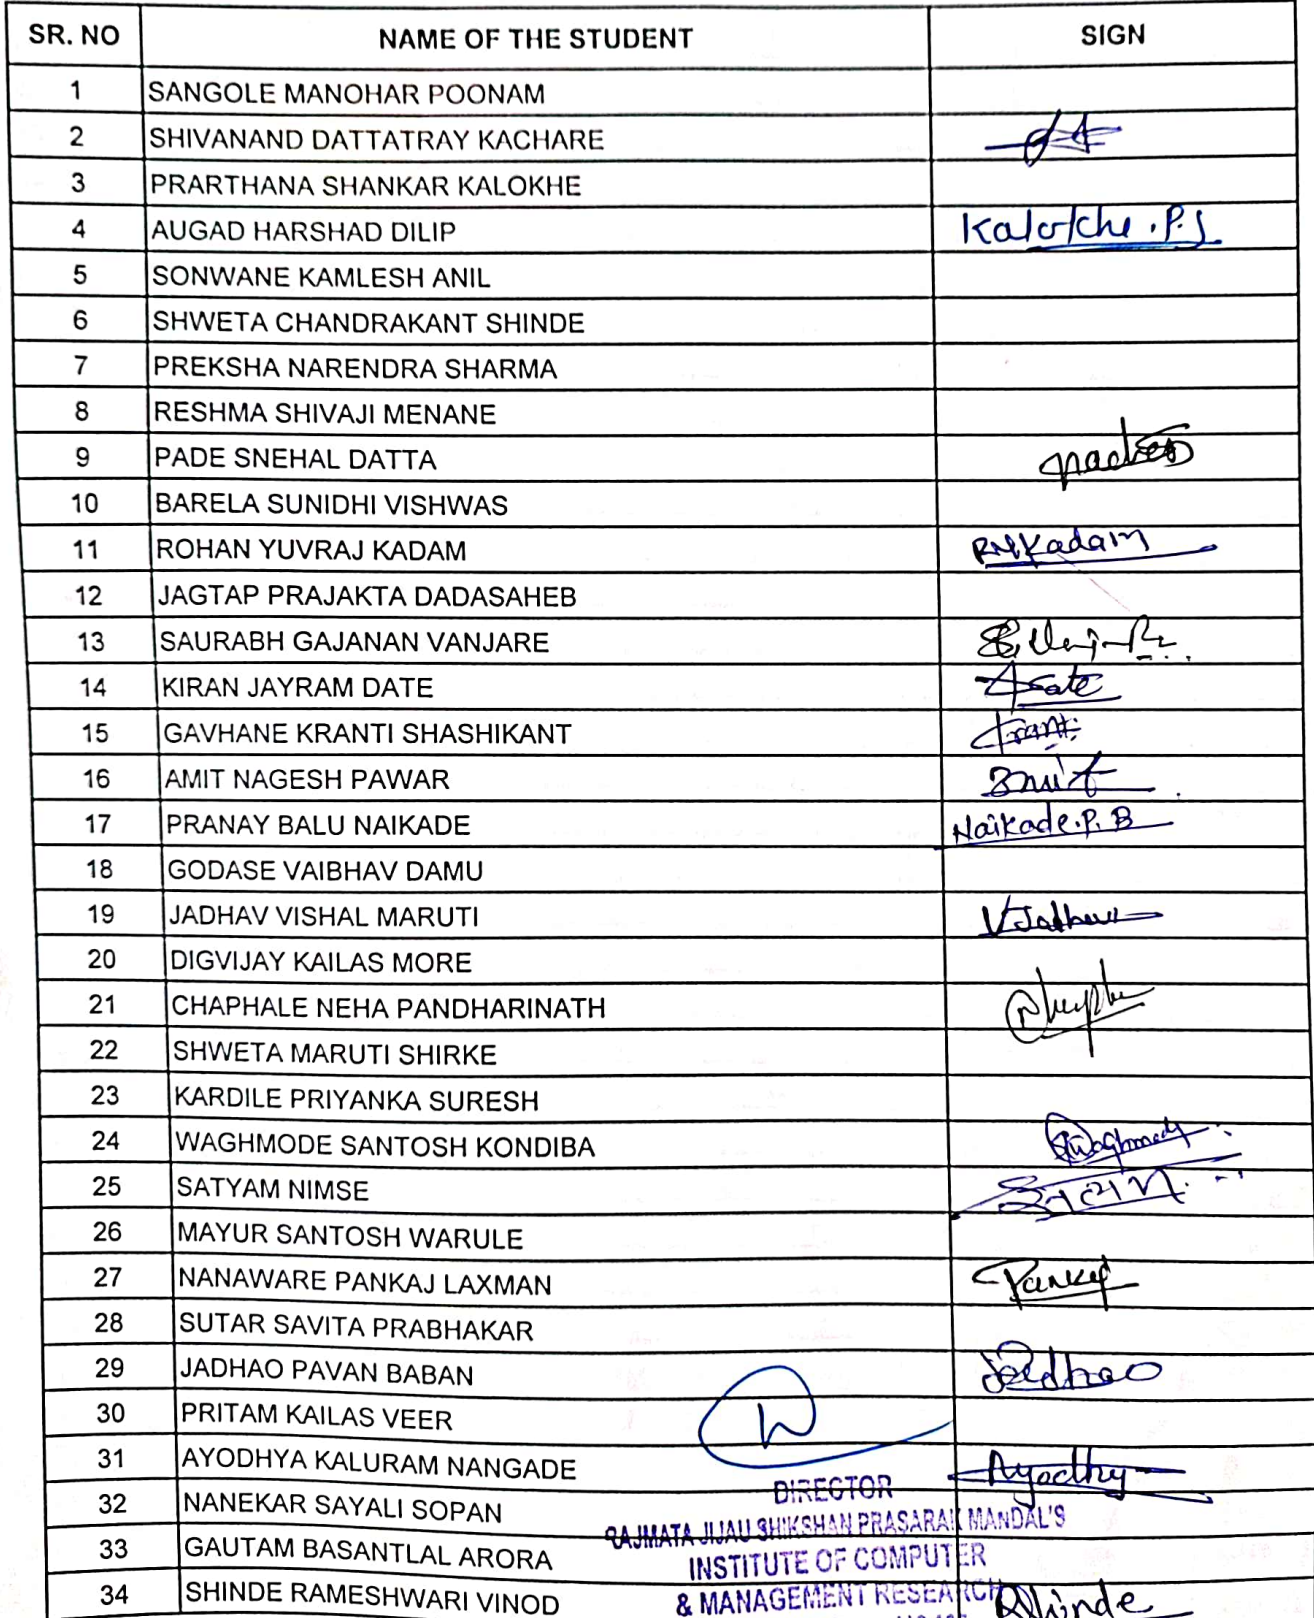 SR. NO NAME OF THE STUDENT SIGN
1 SANGOLE MANOHAR POONAM
2 SHIVANAND DATTATRAY KACHARE
3 PRARTHANA SHANKAR KALOKHE
4 AUGAD HARSHAD DILIP Kalokhe.P.S
5 SONWANE KAMLESH ANIL
6 SHWETA CHANDRAKANT SHINDE
7 PREKSHA NARENDRA SHARMA
8 RESHMA SHIVAJI MENANE
9 PADE SNEHAL DATTA
10 BARELA SUNIDHI VISHWAS
11 ROHAN YUVRAJ KADAM RYKadam
12 JAGTAP PRAJAKTA DADASAHEB
13 SAURABH GAJANAN VANJARE
14 KIRAN JAYRAM DATE
15 GAVHANE KRANTI SHASHIKANT Kranti
16 AMIT NAGESH PAWAR
17 PRANAY BALU NAIKADE Naikade.P.B
18 GODASE VAIBHAV DAMU
19 JADHAV VISHAL MARUTI VJadhav
20 DIGVIJAY KAILAS MORE
21 CHAPHALE NEHA PANDHARINATH
22 SHWETA MARUTI SHIRKE
23 KARDILE PRIYANKA SURESH
24 WAGHMODE SANTOSH KONDIBA
25 SATYAM NIMSE
26 MAYUR SANTOSH WARULE
27 NANAWARE PANKAJ LAXMAN Pankaj
28 SUTAR SAVITA PRABHAKAR
29 JADHAO PAVAN BABAN Jadhao
30 PRITAM KAILAS VEER
31 AYODHYA KALURAM NANGADE
32 NANEKAR SAYALI SOPAN
33 GAUTAM BASANTLAL ARORA
34 SHINDE RAMESHWARI VINOD RShinde
DIRECTOR
RAJMATA JIJAU SHIKSHAN PRASARAK MANDAL'S
INSTITUTE OF COMPUTER
& MANAGEMENT RESEARCH